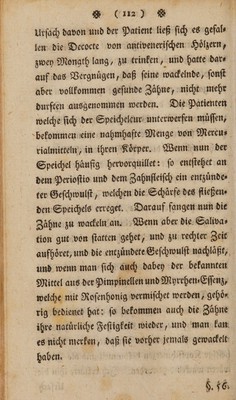 ❖ ( 112 ) ❖
Ursach davon und der Patient ließ sich es gefal-
len die Decocte von antivenerischen Hölzern,
zwey Monath lang, zu trinken, und hatte dar-
auf das Vergnügen, daß seine wackelnde, sonst
aber vollkommen gesunde Zähne, nicht mehr
durften ausgenommen werden. Die Patienten
welche sich der Speichelcur unterwerfen müssen,
bekommen eine nahmhafte Menge von Mercu-
rialmitteln, in ihren Körper. Wenn nun der
Speichel häufig hervorquillet: so entstehet an
dem Periostio und dem Zahnfleisch ein entzünde-
ter Geschwulst, welchen die Schärfe des fließen-
den Speichels erreget. Darauf fangen nun die
Zähne zu wackeln an. Wenn aber die Saliva-
tion gut von statten gehet, und zu rechter Zeit
aufhöret, und die entzündete Geschwulst nachläßt,
und wenn man sich auch dabey der bekannten
Mittel aus der Pimpinellen und Myrrhen-Essenz,
welche mit Rosenhonig vermischet werden, gehö-
rig bedienet hat: so bekommen auch die Zähne
ihre natürliche Festigkeit wieder, und man kan
es nicht merken, daß sie vorher jemals gewackelt
haben.
§. 56.